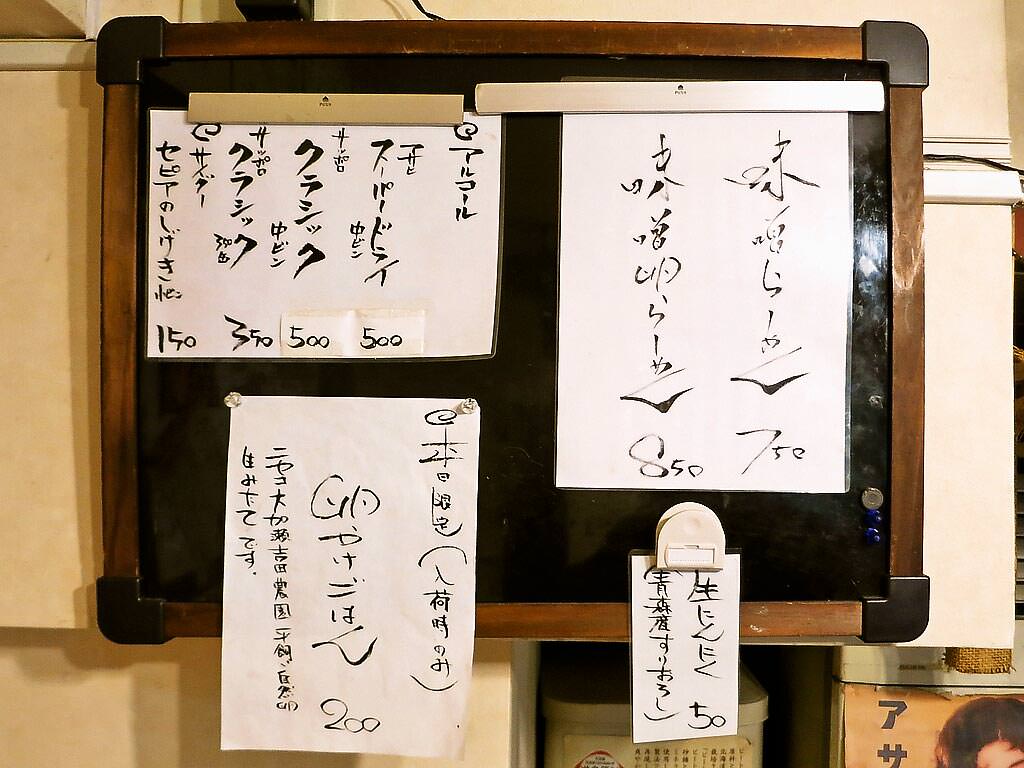 味噌らーめん 750
味噌卵らーめん 850
アルコール
アサヒ
スーパードライ 中ビン 500
サッポロ
クラシック 中ビン 500
サッポロ
クラシック 350缶 350
サイダー
セピアのしげき 150
本日限定(入荷時のみ)
卵やけごはん 200
ニセコ大加瀬吉田農園 平飼い自然卵
生みたてです。
生にんにく 50
(青森産すりおろし)
PUSH
PUSH
アサ